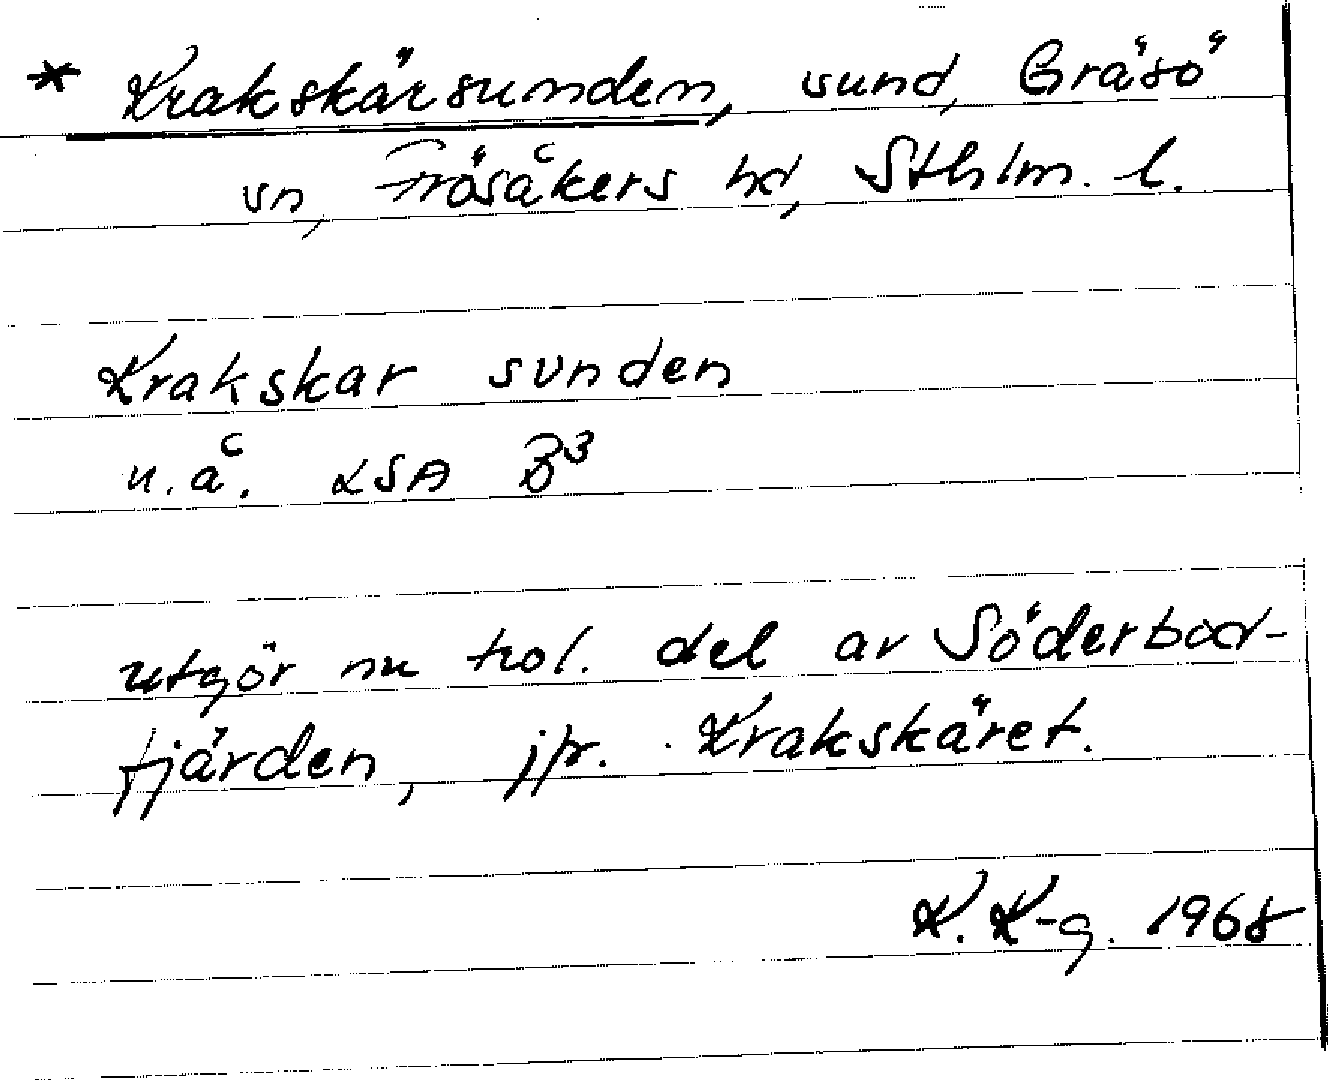 * Krakskärsunden, sund, Gräsö
sn, Frösåkers hd, Sthlm. l.
Krakskar sunden
u.å. LSA B³
utgör nu trol. del av Söderbod-
fjärden, jfr. Krakskäret.
K. K-g. 1968